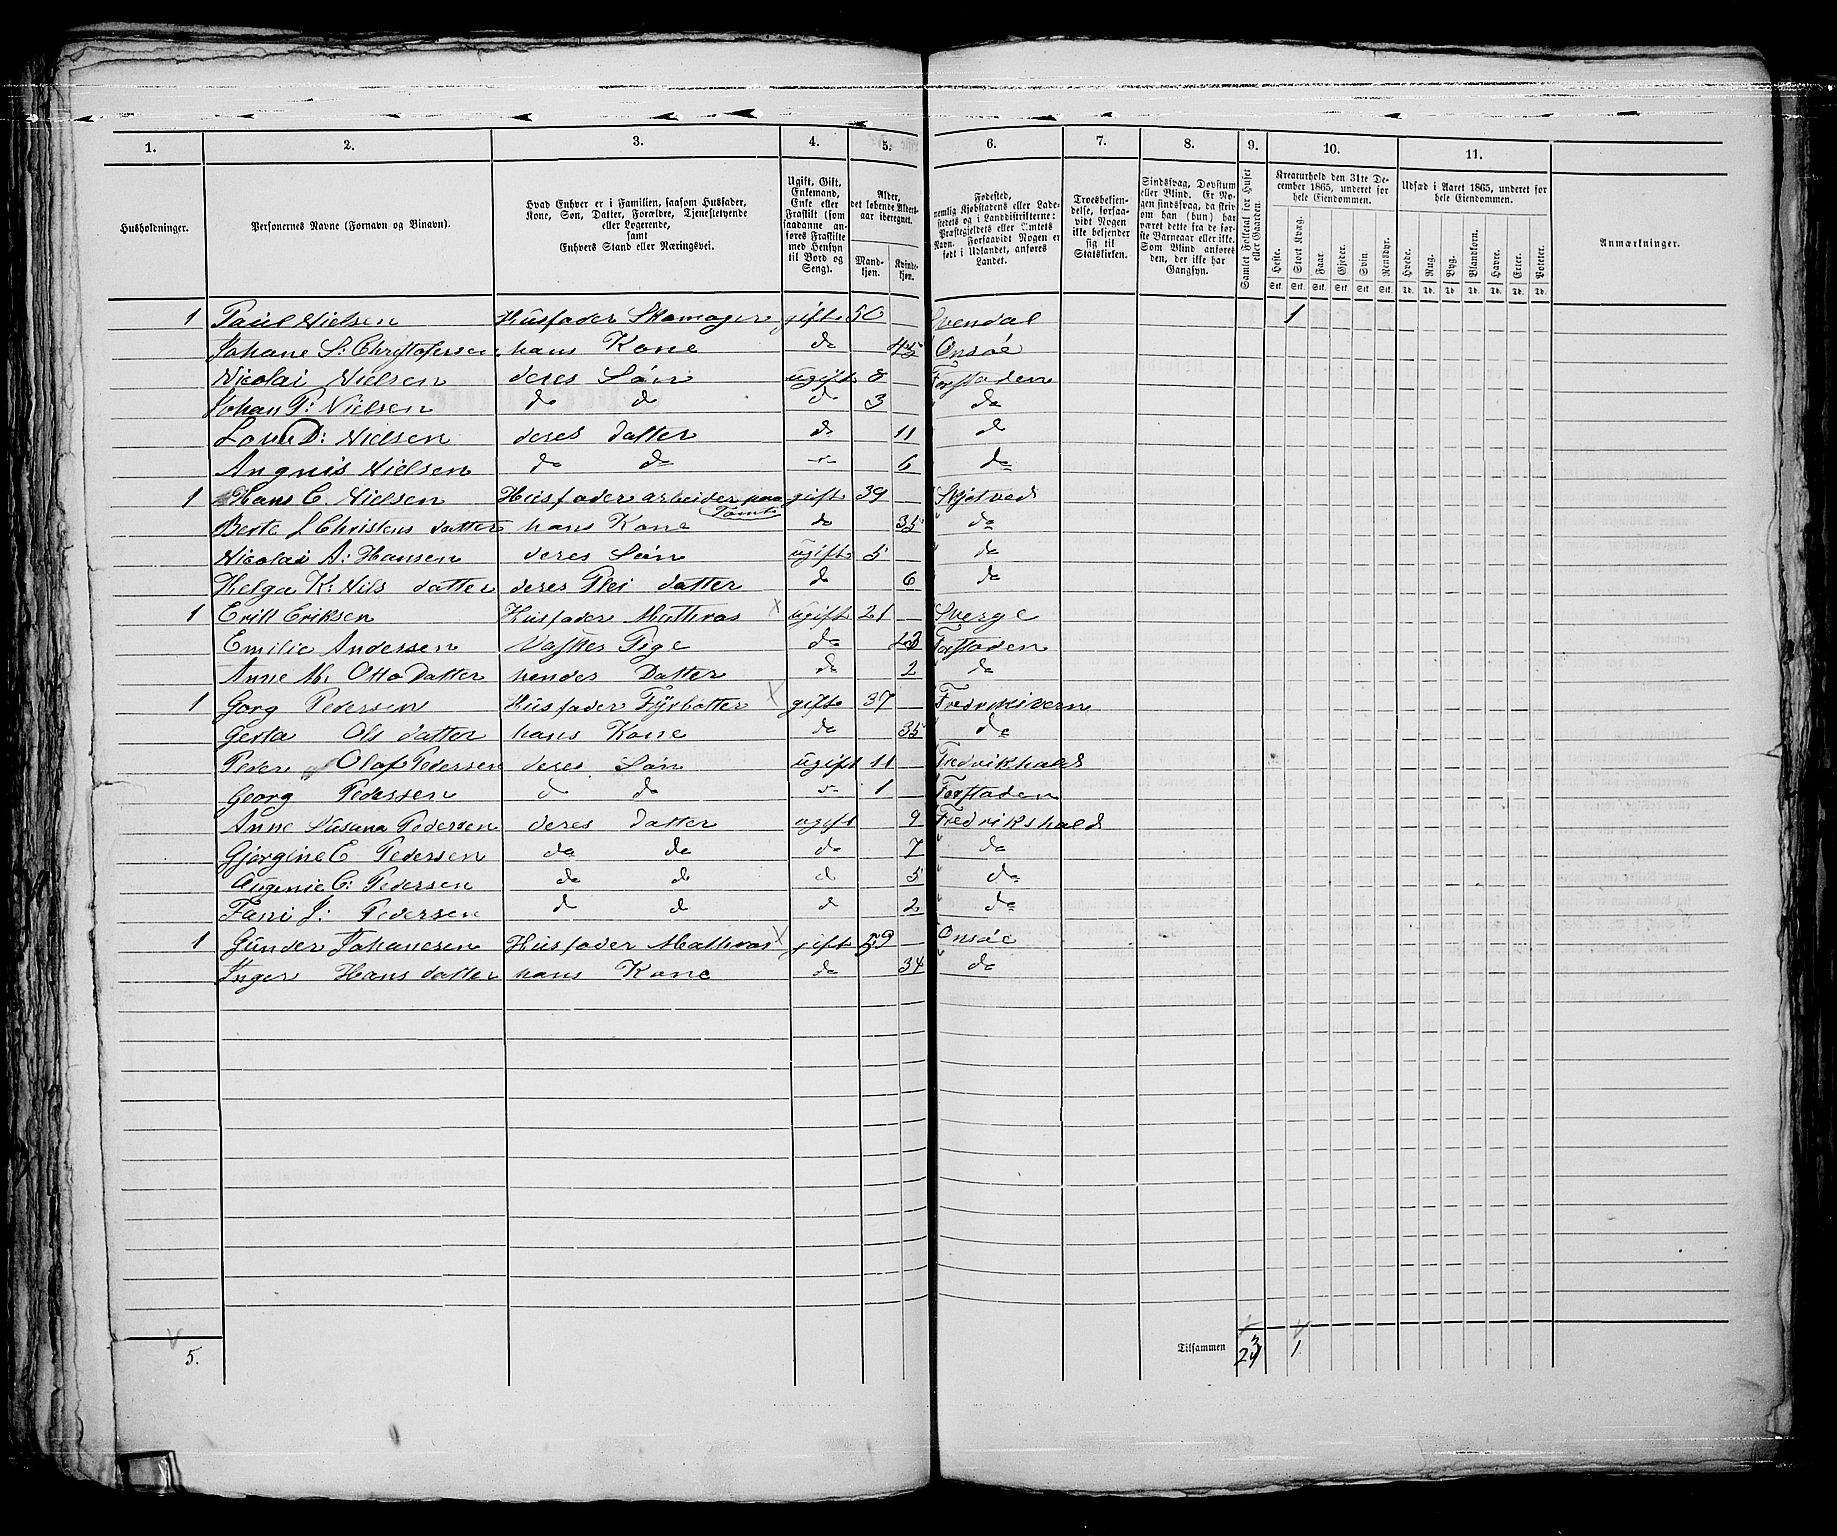 1. 2. 3. 4. 5. 6. 7. 8. 9. 10. 11.
Husholdninger.
Personernes Navne (Fornavn og Binavn).
Hvad Enhver er i Familien, saasom Husfader, Kone, Søn, Datter, Forældre, Tjenestetyende eller Logerende, samt Enhvers Stand eller Næringsvei.
Ugift, Gift, Enkemand, Enke eller Fraskilt (som saadanne anføres Fraskilte med Hensyn til Bord og Seng).
Alder, det løbende Alders-aar iberegnet.
Mand-kjøn. Kvinde-kjøn.
Fødested, nemlig Kjøbstadens eller Ladestedets og i Landdistrikterne: Præstegjeldets eller Amtets Navn. Forsaavidt Nogen er født i Udlandet, anføres Landet.
Troesbekjendelse, forsaavidt Nogen ikke bekjender sig til Statskirken.
Sindssvag, Døvstum eller Blind. Er Nogen sindssvag, da skrives om han (hun) har været dette fra de første Barneaar eller ikke. Som Blind anføres den, der ikke har Gangsyn.
Samlet Folketal for Huset eller Gaarden.
Kreaturhold den 31te December 1865, underet for hele Eiendommen.
Heste. Stort Kvæg. Faar. Gjeder. Svin. Rensdyr.
Stk. Stk. Stk. Stk. Stk. Stk.
Udsæd i Aaret 1865, underet for hele Eiendommen.
Hvede. Rug. Byg. Blandkorn. Havre. Erter. Poteter.
Td. Td. Td. Td. Td. Td. Td.
Anmærkninger.
1 Paul Nielsen Husfader Skomager gift 50 Svendal 1
Johane S: Christofersen hans Kone do 45 Onsøe
Nicolai Nielsen deres Søn ugift 8 Forstaden
Johan P: Nielsen do do do 3 " do
D: Nielsen deres datter do 11 " do
Angnis Nielsen do do 6 " do
1 Hans C. Nielsen Husfader arbeider paa Tomt gift 39 Skjetved
Berte L Christens datter hans Kone do 35 " do
Nicolai A: Hansen deres Søn ugift 5 " do
Helga K: Nils datter deres Plei datter do 6 " do
1 Erik Eriksen Husfader Mathros x ugift 21 Sverge
Emilie Andersen Vasker Pige do 23 Forstaden
Anne M: Otto Datter hendes Datter do 2 " do
1 Gorg Pedersen Husfader Fyrbøtter x gift 37 Fredriksvern
Gerta Ols datter hans Kone do 35 " do
Peder Olaf Pedersen deres Søn ugift 11 Fredrikhald
Georg Pedersen do do 1 Forstaden
Anne Susuna Pedersen deres datter ugift 9 Fredrikshald
Gjorgine C Pedersen do do do 7 " do
Augenie C: Pedersen do do do 5 " do
Fani J: Pedersen do do do 2 " do
1 Gunder Johanesen Husfader Mathros x gift 59 Onsøe
Inger Hans datter hans Kone do 34 " do
5.
Tilsammen 23 1